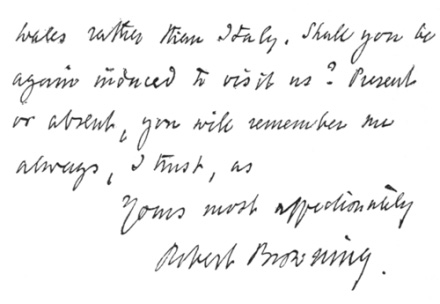 Wales rather than Italy. Shall you be
again induced to visit us? Present
or absent, you will remember me
always, I trust, as
Yours most affectionately
Robert Browning.